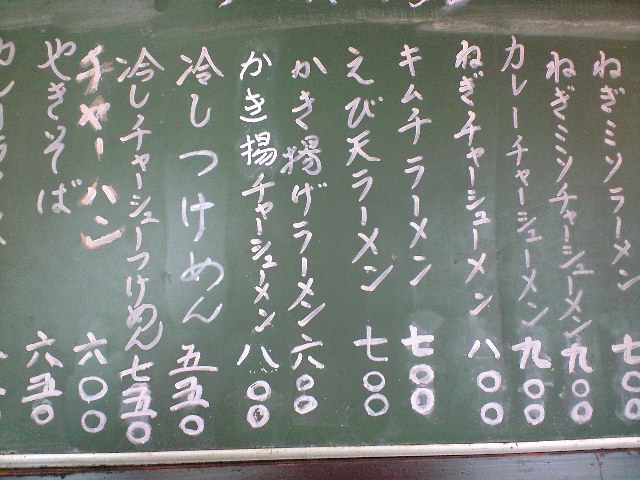 ねぎミソラーメン 七〇〇
ねぎミソチャーシューメン 九〇〇
カレーチャーシューメン 九〇〇
ねぎチャーシューメン 八〇〇
キムチラーメン 七〇〇
えび天ラーメン 七〇〇
かき揚げラーメン 六〇〇
かき揚チャーシューメン 八〇〇
冷しつけめん 五五〇
冷しチャーシューつけめん 七五〇
チャーハン 六〇〇
やきそば 六五〇